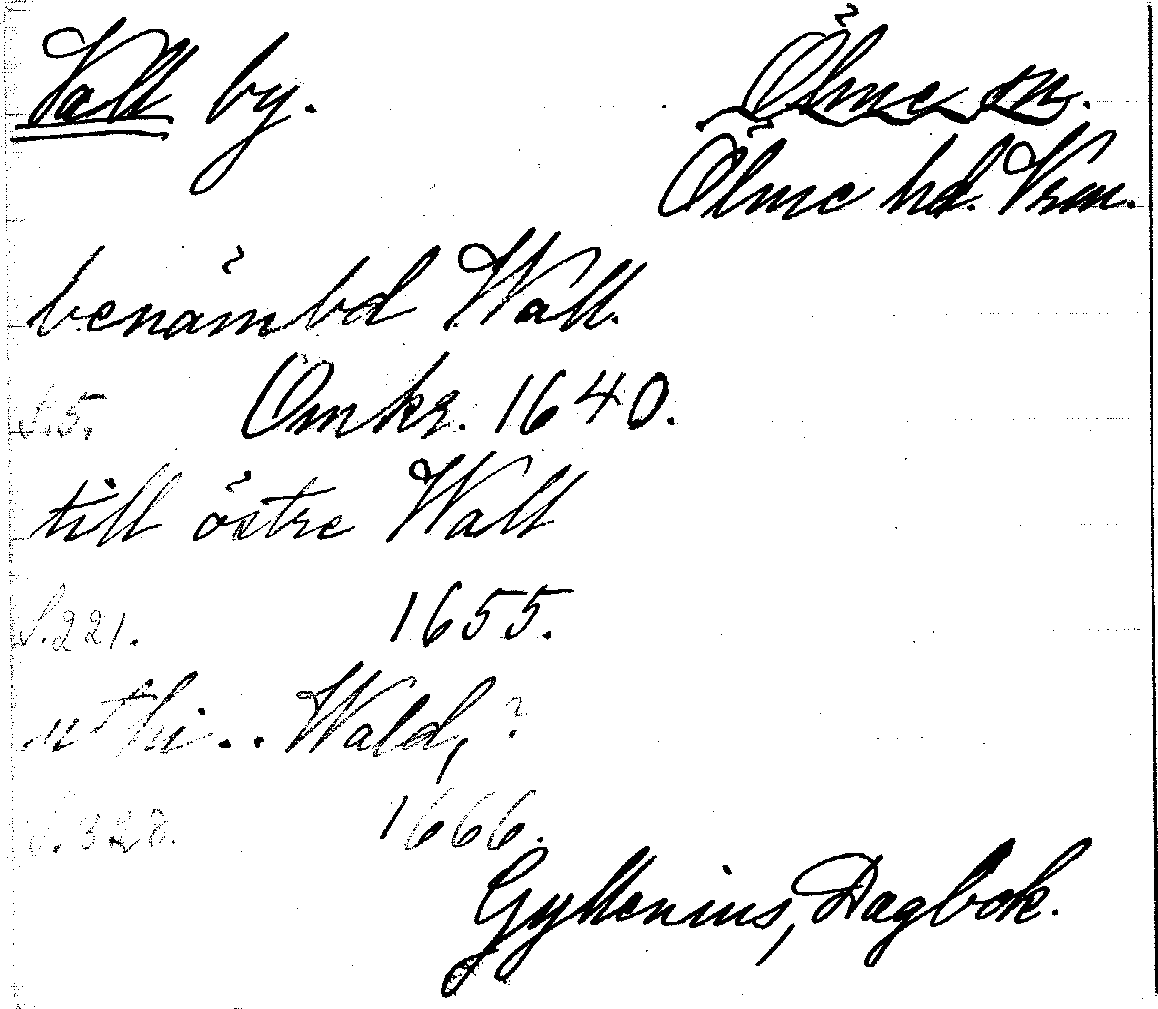 Vall by. Ölme sn.
Ölme hd. Vrm.
benämbd Wall.
S.5. Omkr. 1640.
till östre Wall
S.221. 1655.
uthi .. Wald, ?
S.328. 1666.
Gyllenius, Dagbok.